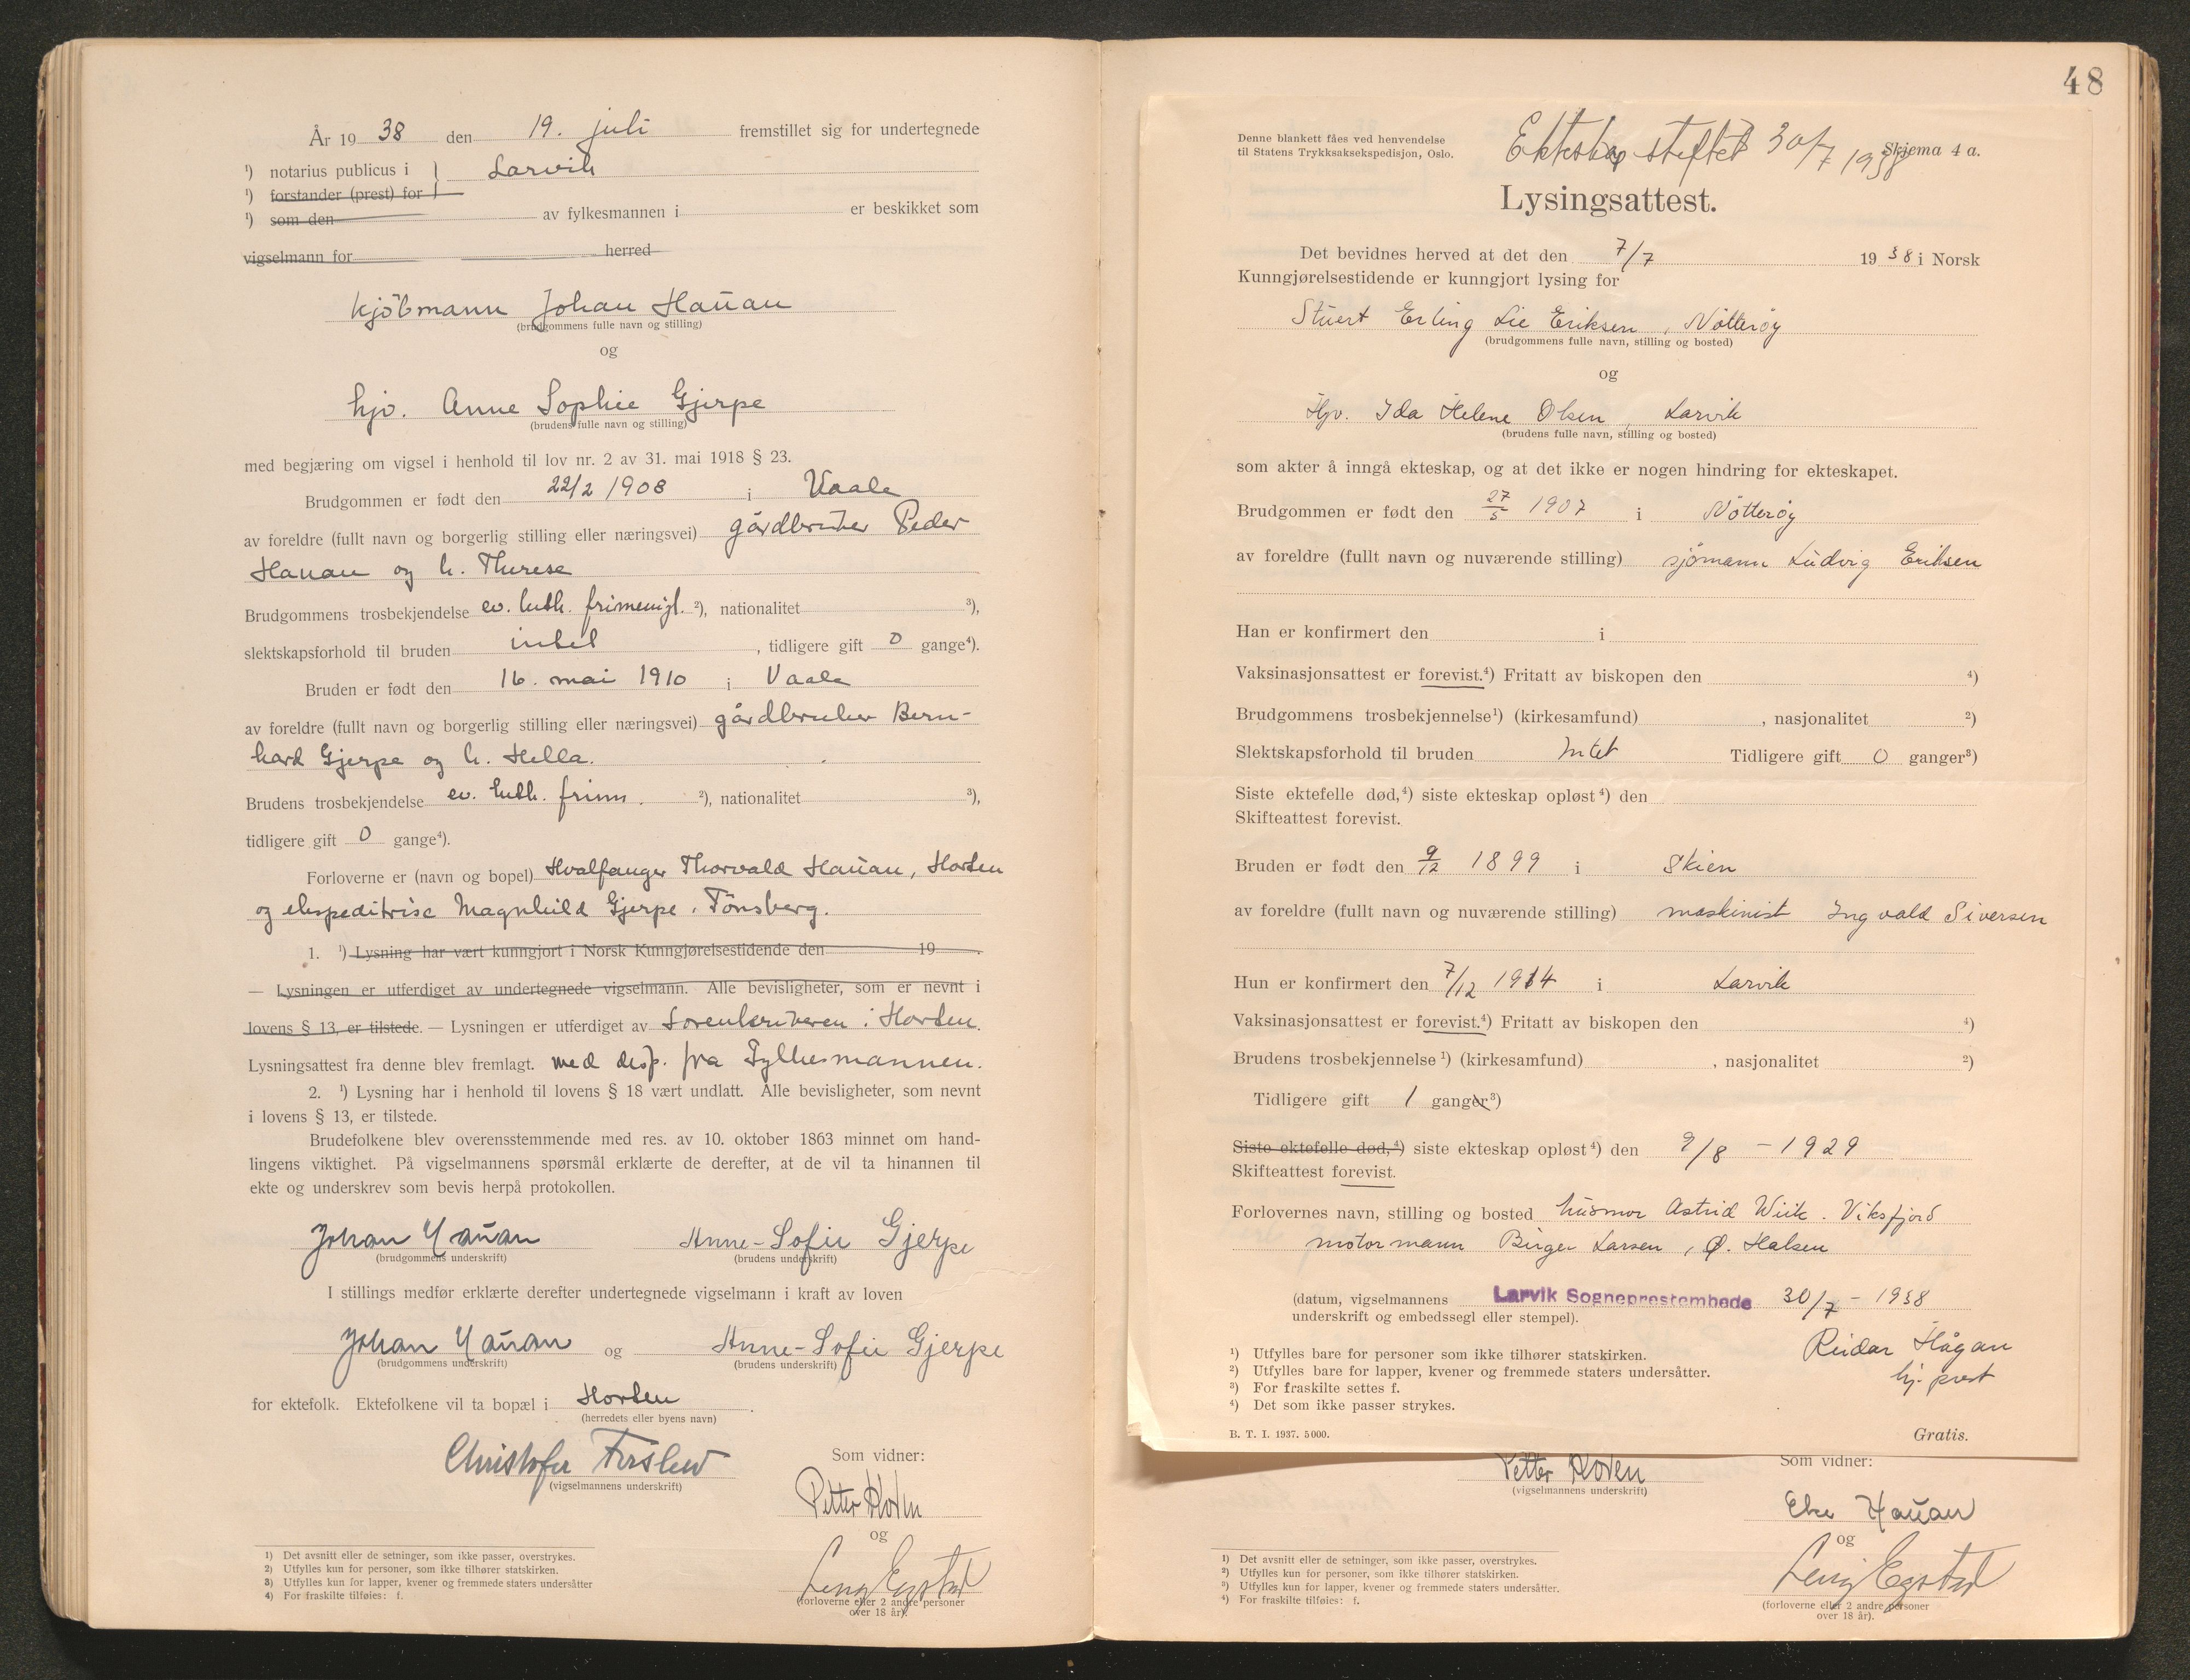 År 19 38 den 19. juli fremstillet sig for undertegnede
¹) notarius publicus i } Larvik
¹) forstander (prest) for
¹) som den av fylkesmannen i er beskikket som
vigselmann for herred
Kjöbmann Johan Hauan
(brudgommens fulle navn og stilling)
og
hjv. Anne Sophie Gjerpe
(brudens fulle navn og stilling)
med begjæring om vigsel i henhold til lov nr. 2 av 31. mai 1918 § 23.
Brudgommen er født den 22/2 1908 i Vaale
av foreldre (fullt navn og borgerlig stilling eller næringsvei) gårdbruker Peder
Hauan og h. Therese
Brudgommens trosbekjendelse ev. luth. frimenigh. ²), nationalitet ³),
slektskapsforhold til bruden intet , tidligere gift 0 gange⁴).
Bruden er født den 16. mai 1910 i Vaale
av foreldre (fullt navn og borgerlig stilling eller næringsvei) gårdbruker Bern-
hard Gjerpe og h. Hella.
Brudens trosbekjendelse ev. luth. frim. ²), nationalitet ³),
tidligere gift 0 gange⁴).
Forloverne er (navn og bopel) Hvalfanger Thorvald Hauan, Horten
og ekspeditrise Magnhild Gjerpe, Tönsberg.
1. ¹) Lysning har vært kunngjort i Norsk Kunngjørelsestidende den 19 .
— Lysningen er utferdiget av undertegnede vigselmann. Alle bevisligheter, som er nevnt i
lovens § 13, er tilstede. — Lysningen er utferdiget av Sorenskriveren i Horten.
Lysningsattest fra denne blev fremlagt. med disp. fra Fylkesmannen.
2. ¹) Lysning har i henhold til lovens § 18 vært undlatt. Alle bevisligheter, som nevnt
i lovens § 13, er tilstede.
Brudefolkene blev overensstemmende med res. av 10. oktober 1863 minnet om hand-
lingens viktighet. På vigselmannens spørsmål erklærte de derefter, at de vil ta hinannen til
ekte og underskrev som bevis herpå protokollen.
Johan Hauan Anne-Sofie Gjerpe
(brudgommens underskrift) (brudens underskrift)
I stillings medfør erklærte derefter undertegnede vigselmann i kraft av loven
Johan Hauan og Anne-Sofie Gjerpe
(brudgommens underskrift) (brudens underskrift)
for ektefolk. Ektefolkene vil ta bopæl i Horten .
(herredets eller byens navn)
Christofer Firslew
(vigselmannens underskrift)
Som vidner:
Petter Hoven
og
Egstad
(forloverne eller 2 andre personer
over 18 år).
1) Det avsnitt eller de setninger, som ikke passer, overstrykes.
2) Utfylles kun for personer, som ikke tilhører statskirken.
3) Utfylles kun for lapper, kvener og fremmede staters undersåtter
4) For fraskilte tilføies: f.
48
Denne blankett fåes ved henvendelse
til Statens Trykksaksekspedisjon, Oslo.
Ekteskap stiftet 30/7 1938
Skjema 4 a.
Lysingsattest.
Det bevidnes herved at det den 7/7 19 38 i Norsk
Kunngjørelsestidende er kunngjort lysing for
Stuert Erling Lie Eriksen, Nötteröy
(brudgommens fulle navn, stilling og bosted)
og
Hjv. Ida Helene Olsen, Larvik
(brudens fulle navn, stilling og bosted)
som akter å inngå ekteskap, og at det ikke er nogen hindring for ekteskapet.
Brudgommen er født den 27/5 1907 i Nötteröy
av foreldre (fullt navn og nuværende stilling) sjömann Ludvig Eriksen
Han er konfirmert den i
Vaksinasjonsattest er forevist.⁴) Fritatt av biskopen den ⁴)
Brudgommens trosbekjennelse¹) (kirkesamfund) , nasjonalitet ²)
Slektskapsforhold til bruden Intet Tidligere gift 0 ganger³)
Siste ektefelle død,⁴) siste ekteskap opløst⁴) den
Skifteattest forevist.
Bruden er født den 9/12 1899 i Skien
av foreldre (fullt navn og nuværende stilling) maskinist Ingvald Siversen
Hun er konfirmert den 7/12 1914 i Larvik
Vaksinasjonsattest er forevist.⁴) Fritatt av biskopen den ⁴)
Brudens trosbekjennelse¹) (kirkesamfund) , nasjonalitet ²)
Tidligere gift 1 ganger³)
Siste ektefelle død,⁴) siste ekteskap opløst⁴) den 9/8 - 1929
Skifteattest forevist.
Forlovernes navn, stilling og bosted husmor Astrid Wiik. Viksfjord
motormann Birger Larsen, Ø. Halsen
(datum, vigselmannens Larvik Sogneprestembede 30/7 - 1938
underskrift og embedssegl eller stempel).
Reidar Hågan
hj. prest
¹) Utfylles bare for personer som ikke tilhører statskirken.
²) Utfylles bare for lapper, kvener og fremmede staters undersåtter.
³) For fraskilte settes f.
⁴) Det som ikke passer strykes.
B. T. I. 1937. 5000. Gratis.
Petter Hoven
(vigselmannens underskrift)
Som vidner:
Else Hauan
og
Egstad
(forloverne eller 2 andre personer
over 18 år).
¹) Det avsnitt eller de setninger, som ikke passer, overstrykes.
²) Utfylles kun for personer, som ikke tilhører statskirken.
³) Utfylles kun for lapper, kvener og fremmede staters undersåtter.
⁴) For fraskilte tilføies: f.